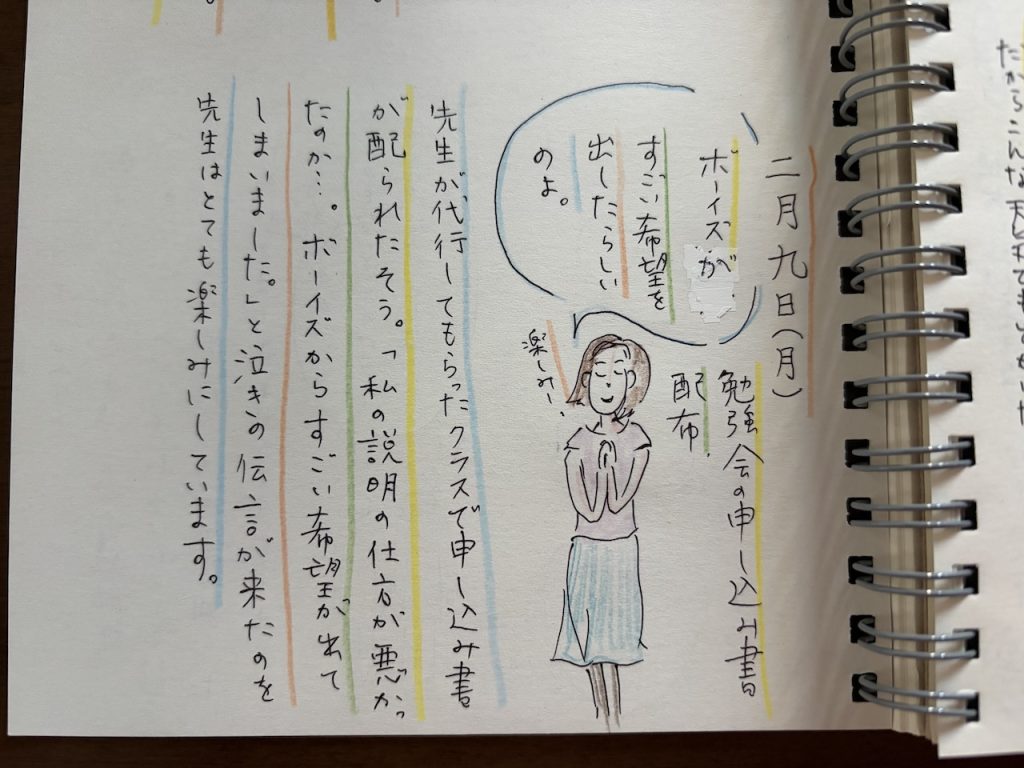 二月九日(月)
勉強会の申し込み書
配布
ボーイズが
すごい希望を
出したらしい
のよ。
楽しみー、
先生が代行してもらったクラスで申し込み書
が配られたそう。「私の説明の仕方が悪かっ
たのか…。ボーイズからすごい希望が出て
しまいました。」と泣きの伝言が来たのを
先生はとても楽しみにしています。